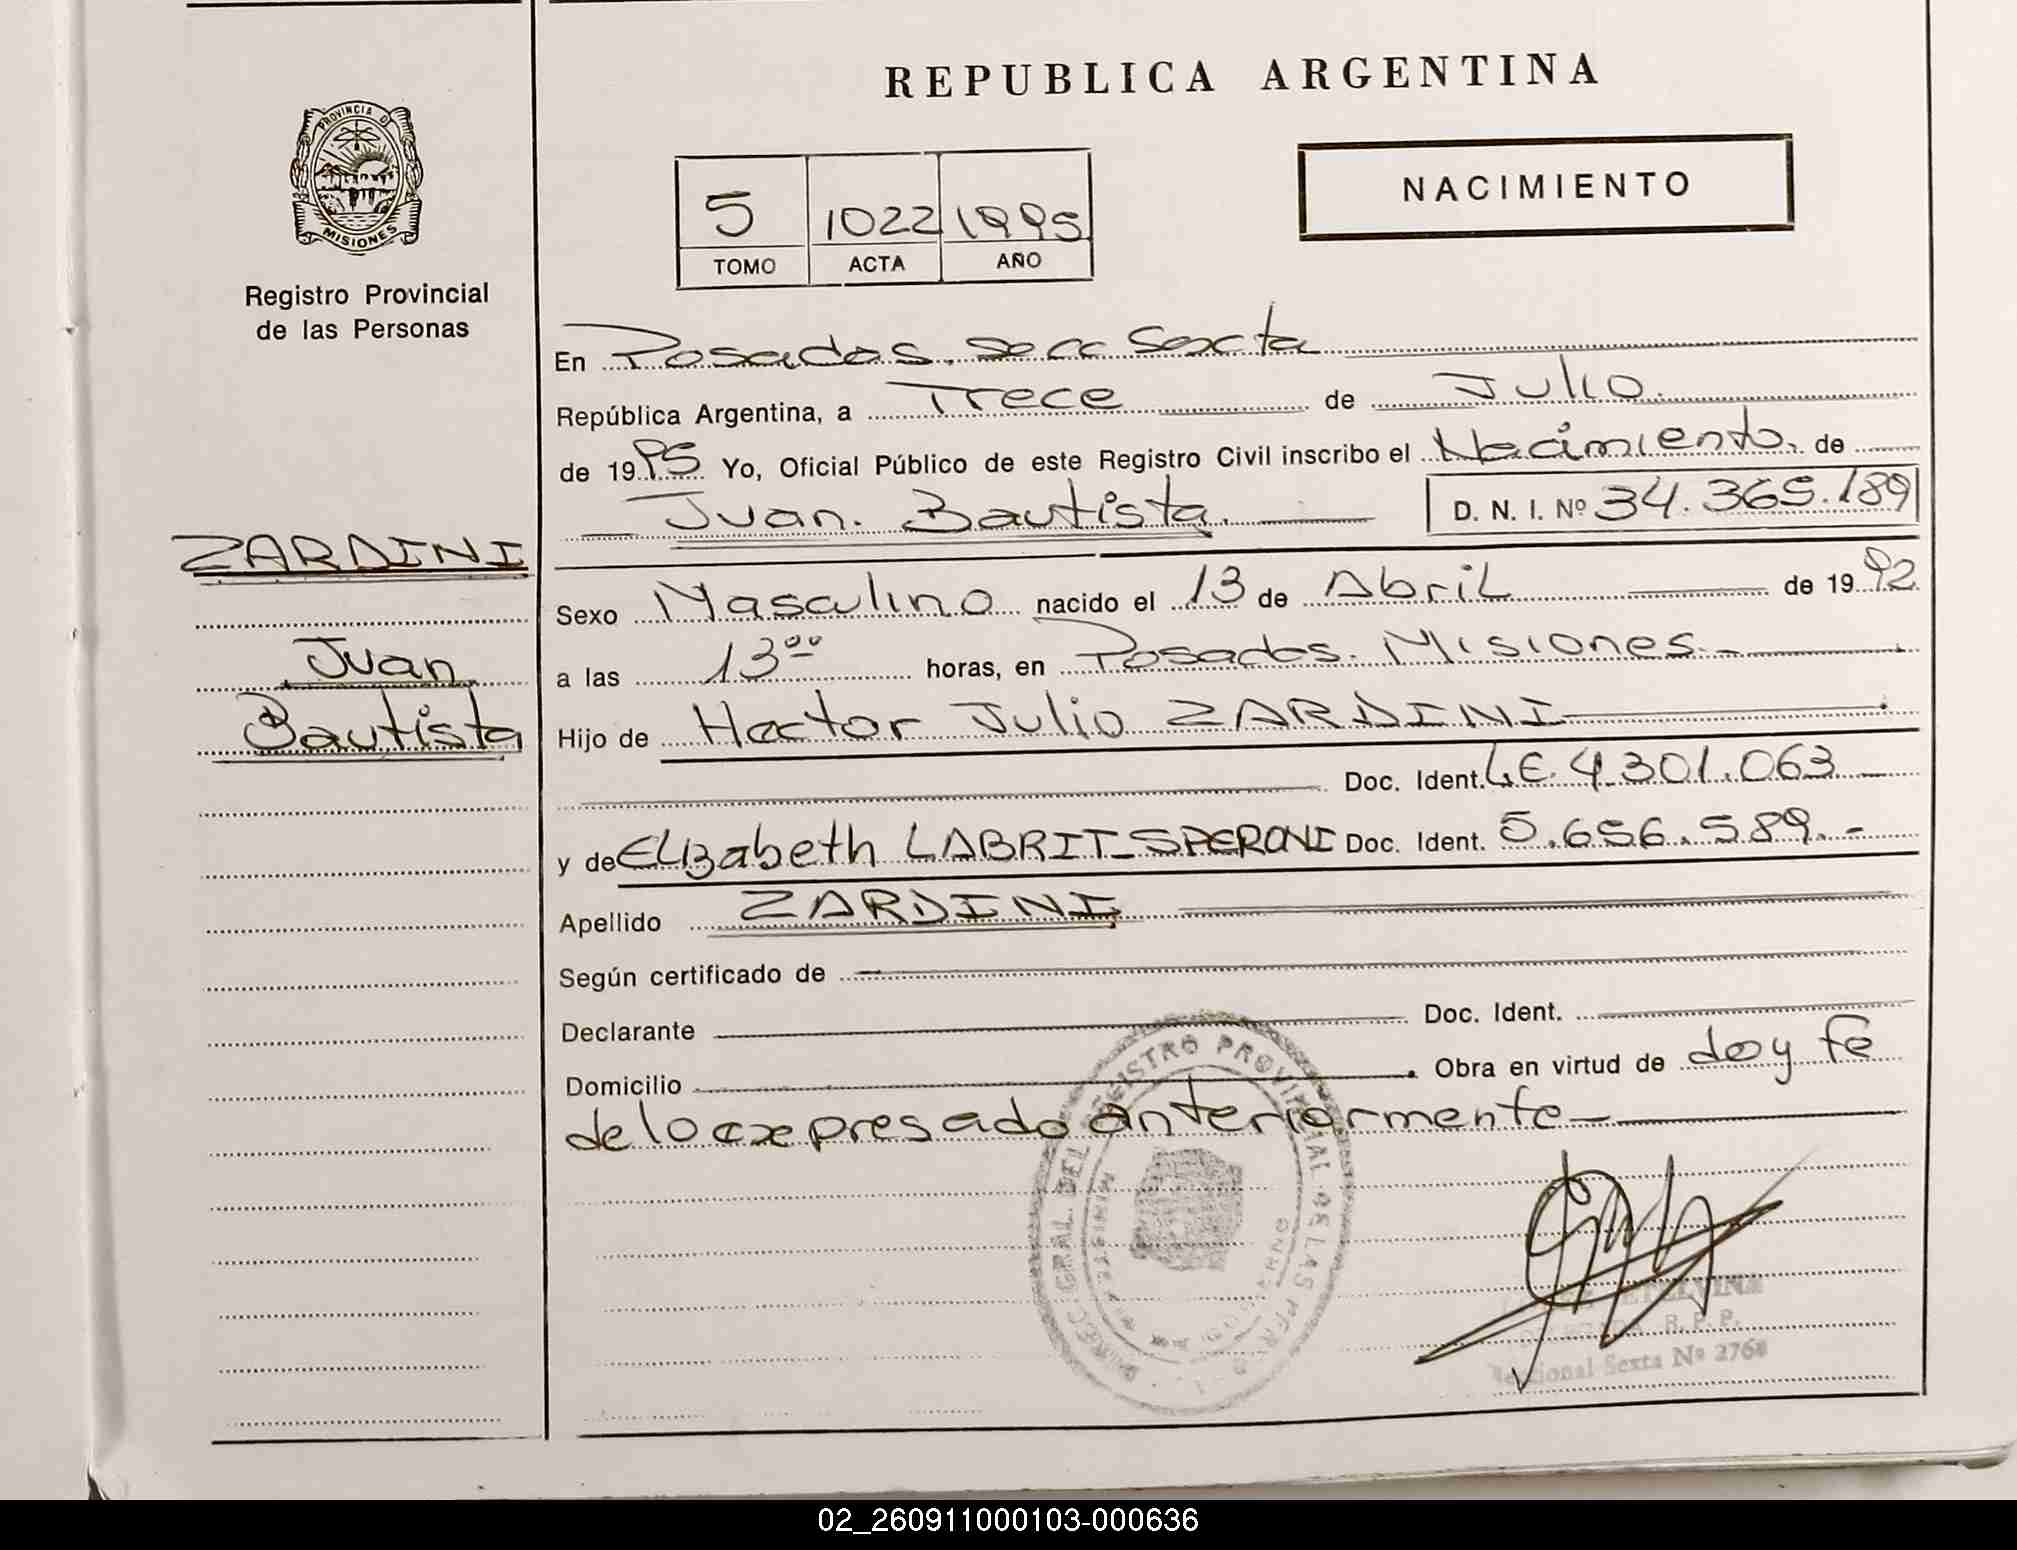 REPUBLICA ARGENTINA
PROVINCIA D
MISIONES
Registro Provincial
de las Personas
NACIMIENTO
5 1022 1995
TOMO ACTA AÑO
En Posadas. Secc Sexta
República Argentina, a Trece de Julio
de 1995 Yo, Oficial Público de este Registro Civil inscribo el Nacimiento. de
Juan. Bautista. D. N. I. Nº 34.365.189
ZARDINI
Juan
Bautista
Sexo Masculino nacido el 13 de Abril de 1992
a las 13⁰⁰ horas, en Posadas. Misiones.-
Hijo de Hector Julio ZARDINI
Doc. Ident. L.E. 4.301.063
y de Elizabeth LABRIT-SPERONI Doc. Ident. 5.656.589.-
Apellido ZARDINI
Según certificado de
Declarante Doc. Ident.
Domicilio Obra en virtud de doy fe
de lo expresado anteriormente-
DIREC. GRAL. DEL REGISTRO PROVINCIAL DE LAS PER
R. P. P.
Sexta Nº 2768
02_260911000103-000636